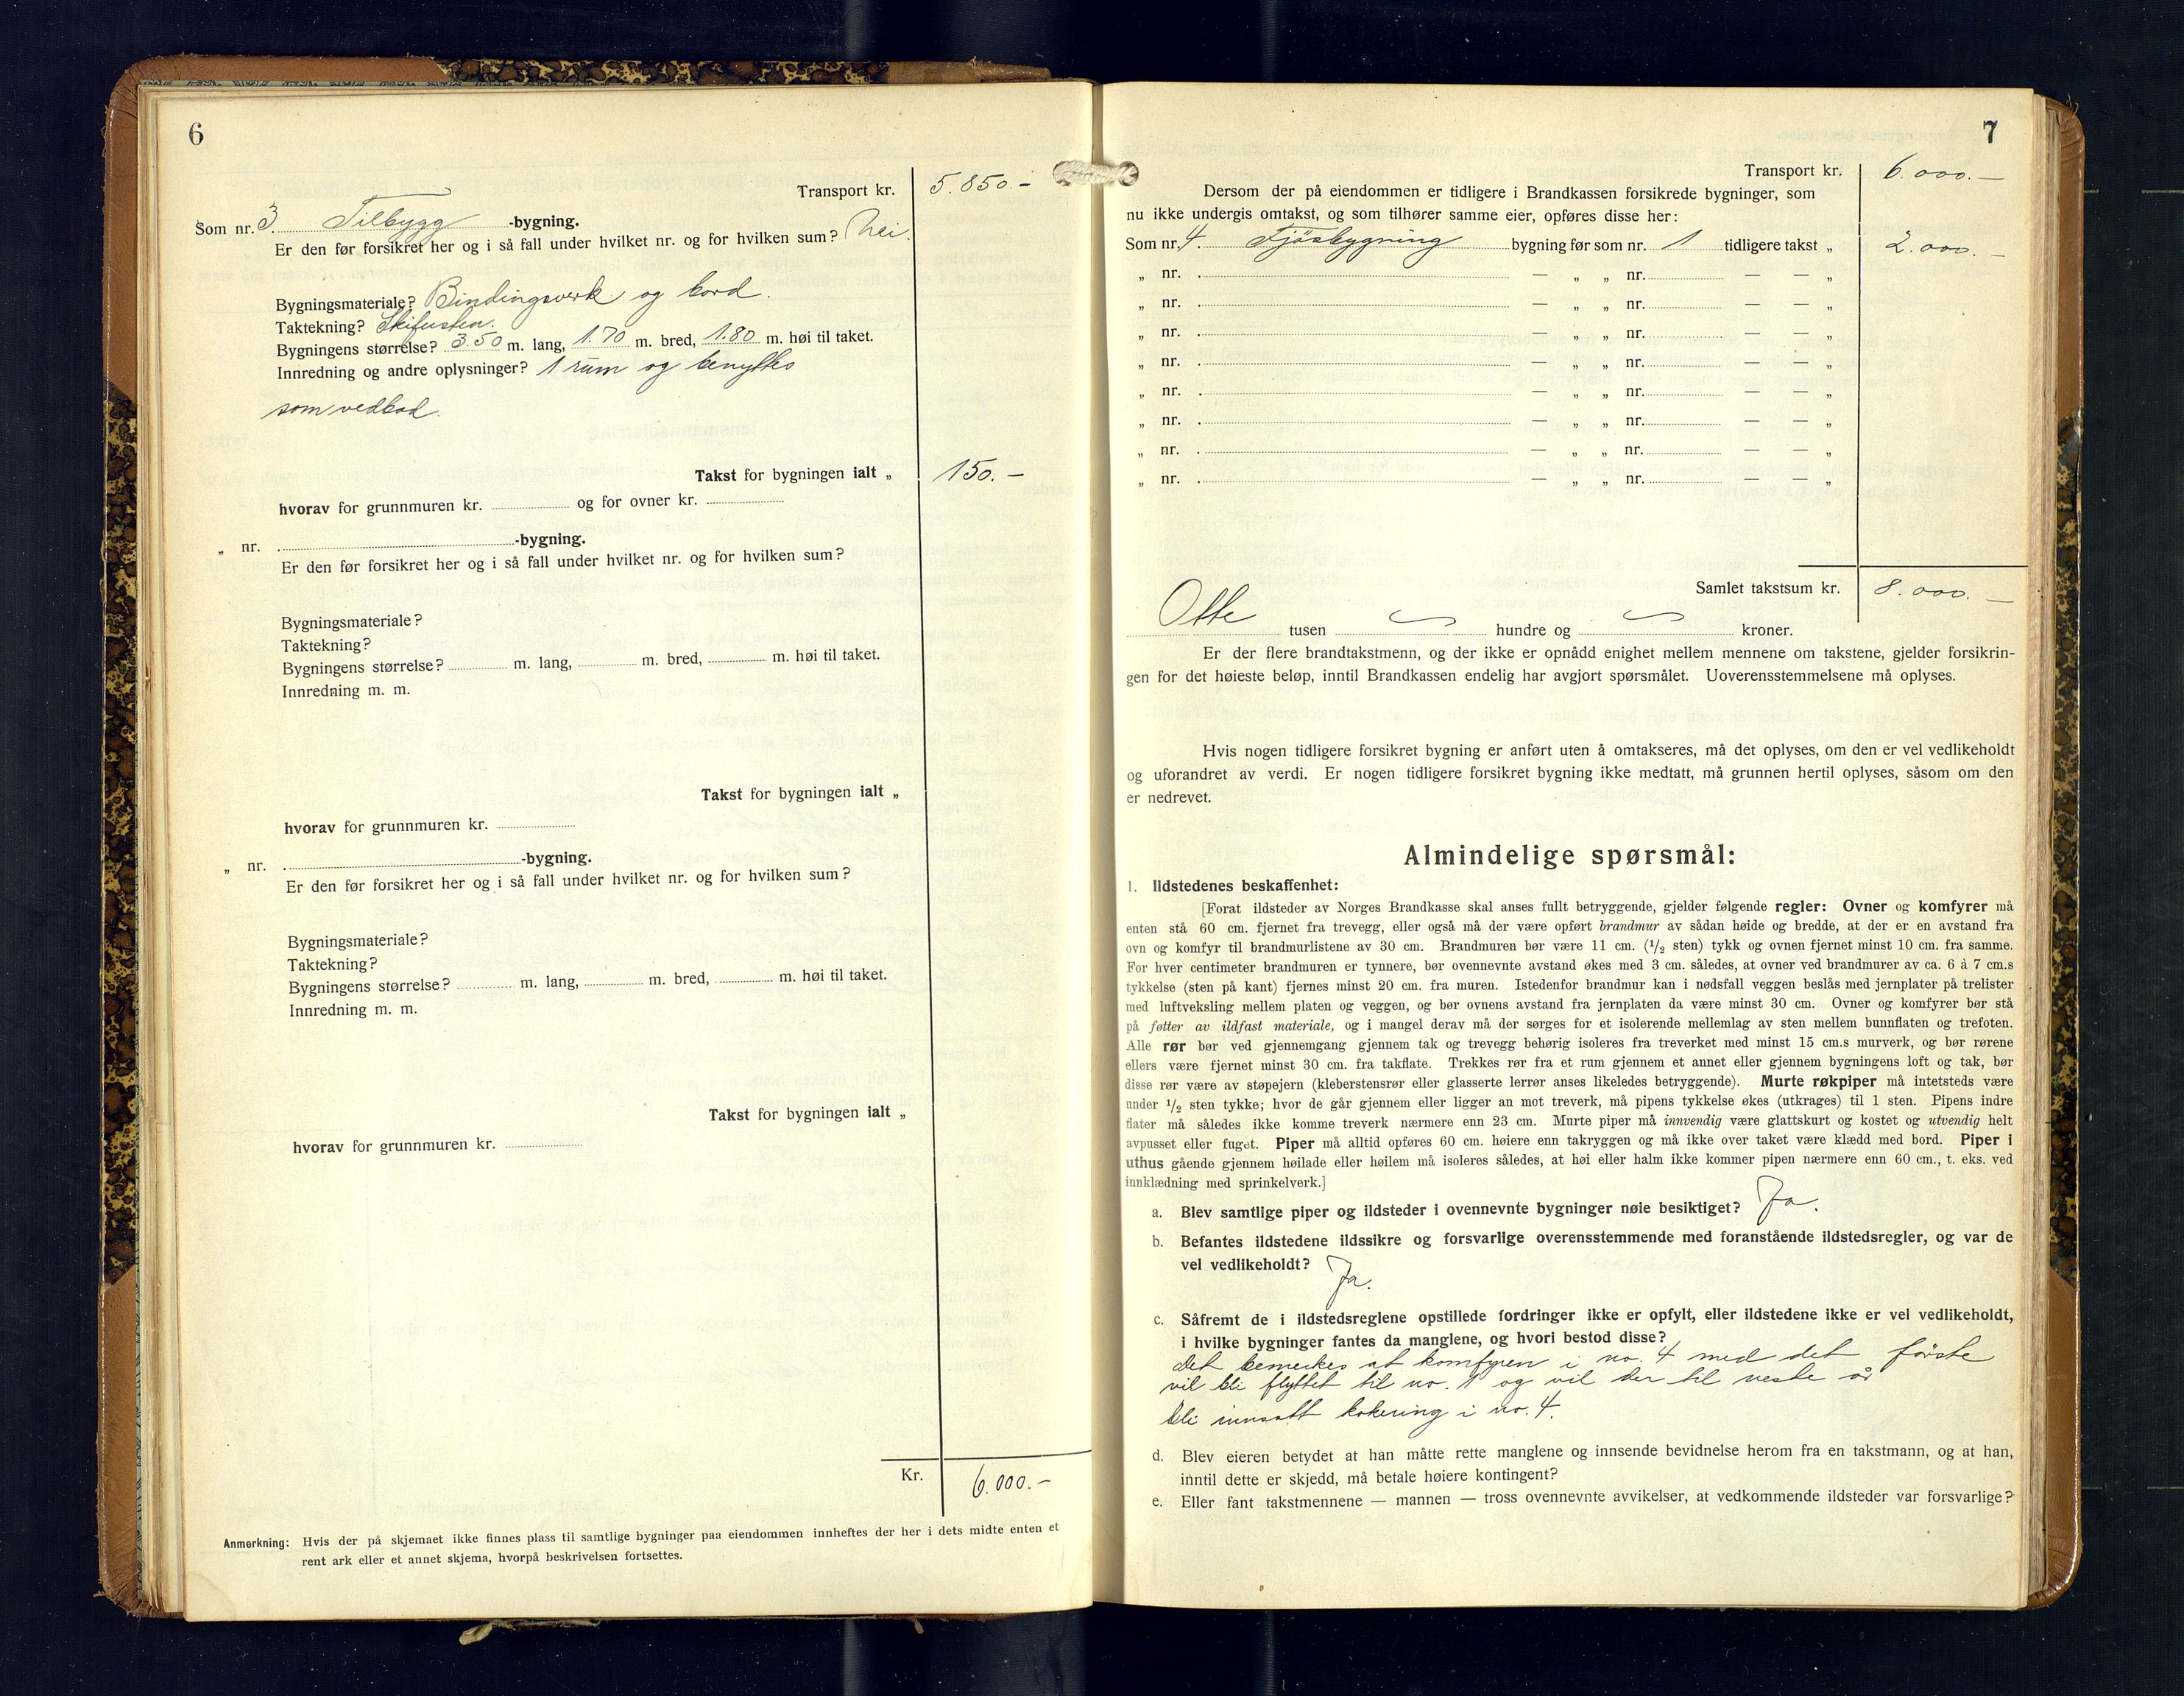 6
Transport kr. 5.850.-
Som nr. 3 Tilbygg -bygning.
Er den før forsikret her og i så fall under hvilket nr. og for hvilken sum? Nei.
Bygningsmateriale? Bindingsverk og bord.
Taktekning? Skifersten.
Bygningens størrelse? 3.50 m. lang, 1.70 m. bred, 1.80 m. høi til taket.
Innredning og andre oplysninger? 1 rum og benyttes
som vedbod.
Takst for bygningen ialt „ 150.-
hvorav for grunnmuren kr. og for ovner kr.
„ nr. -bygning.
Er den før forsikret her og i så fall under hvilket nr. og for hvilken sum?
Bygningsmateriale?
Taktekning?
Bygningens størrelse? m. lang, m. bred, m. høi til taket.
Innredning m. m.
Takst for bygningen ialt „
hvorav for grunnmuren kr.
„ nr. -bygning.
Er den før forsikret her og i så fall under hvilket nr. og for hvilken sum?
Bygningsmateriale?
Taktekning?
Bygningens størrelse? m. lang, m. bred, m. høi til taket.
Innredning m. m.
Takst for bygningen ialt „
hvorav for grunnmuren kr.
Kr. 6.000.-
Anmerkning: Hvis der på skjemaet ikke finnes plass til samtlige bygninger paa eiendommen innheftes der her i dets midte enten et
rent ark eller et annet skjema, hvorpå beskrivelsen fortsettes.
7
Transport kr. 6.000.-
Dersom der på eiendommen er tidligere i Brandkassen forsikrede bygninger, som
nu ikke undergis omtakst, og som tilhører samme eier, opføres disse her:
Som nr. 4. Fjøsbygning bygning før som nr. 1 tidligere takst „ 2.000.-
„ nr. — „ „ nr. — — „
„ nr. — „ „ nr. — — „
„ nr. — „ „ nr. — — „
„ nr. — „ „ nr. — — „
„ nr. — „ „ nr. — — „
„ nr. — „ „ nr. — — „
„ nr. — „ „ nr. — — „
„ nr. — „ „ nr. — — „
Samlet takstsum kr. 8.000.-
Otte tusen hundre og kroner.
Er der flere brandtakstmenn, og der ikke er opnådd enighet mellem mennene om takstene, gjelder forsikrin-
gen for det høieste beløp, inntil Brandkassen endelig har avgjort spørsmålet. Uoverensstemmelsene må oplyses.
Hvis nogen tidligere forsikret bygning er anført uten å omtakseres, må det oplyses, om den er vel vedlikeholdt
og uforandret av verdi. Er nogen tidligere forsikret bygning ikke medtatt, må grunnen hertil oplyses, såsom om den
er nedrevet.
Almindelige spørsmål:
1. Ildstedenes beskaffenhet:
[Forat ildsteder av Norges Brandkasse skal anses fullt betryggende, gjelder følgende regler: Ovner og komfyrer må
enten stå 60 cm. fjernet fra trevegg, eller også må der være opført brandmur av sådan høide og bredde, at der er en avstand fra
ovn og komfyr til brandmurlistene av 30 cm. Brandmuren bør være 11 cm. (1/2 sten) tykk og ovnen fjernet minst 10 cm. fra samme.
For hver centimeter brandmuren er tynnere, bør ovennevnte avstand økes med 3 cm. således, at ovner ved brandmurer av ca. 6 à 7 cm.s
tykkelse (sten på kant) fjernes minst 20 cm. fra muren. Istedenfor brandmur kan i nødsfall veggen beslås med jernplater på trelister
med luftveksling mellem platen og veggen, og bør ovnens avstand fra jernplaten da være minst 30 cm. Ovner og komfyrer bør stå
på føtter av ildfast materiale, og i mangel derav må der sørges for et isolerende mellemlag av sten mellem bunnflaten og trefoten.
Alle rør bør ved gjennemgang gjennem tak og trevegg behørig isoleres fra treverket med minst 15 cm.s murverk, og bør rørene
ellers være fjernet minst 30 cm. fra takflate. Trekkes rør fra et rum gjennem et annet eller gjennem bygningens loft og tak, bør
disse rør være av støpejern (kleberstensrør eller glasserte lerrør anses likeledes betryggende). Murte røkpiper må intetsteds være
under 1/2 sten tykke; hvor de går gjennem eller ligger an mot treverk, må pipens tykkelse økes (utkrages) til 1 sten. Pipens indre
flater må således ikke komme treverk nærmere enn 23 cm. Murte piper må innvendig være glattskurt og kostet og utvendig helt
avpusset eller fuget. Piper må alltid opføres 60 cm. høiere enn takryggen og må ikke over taket være klædd med bord. Piper i
uthus gående gjennem høilade eller høilem må isoleres således, at høi eller halm ikke kommer pipen nærmere enn 60 cm., t. eks. ved
innklædning med sprinkelverk.]
a. Blev samtlige piper og ildsteder i ovennevnte bygninger nøie besiktiget? Ja.
b. Befantes ildstedene ildssikre og forsvarlige overensstemmende med foranstående ildstedsregler, og var de
vel vedlikeholdt? Ja.
c. Såfremt de i ildstedsreglene opstillede fordringer ikke er opfylt, eller ildstedene ikke er vel vedlikeholdt,
i hvilke bygninger fantes da manglene, og hvori bestod disse?
det bemerkes at komfyren i no. 4 med det første
vil bli flyttet til no. 1 og vil der til neste år
bli innsatt kokering i no. 4.
d. Blev eieren betydet at han måtte rette manglene og innsende bevidnelse herom fra en takstmann, og at han,
inntil dette er skjedd, må betale høiere kontingent?
e. Eller fant takstmennene — mannen — tross ovennevnte avvikelser, at vedkommende ildsteder var forsvarlige?